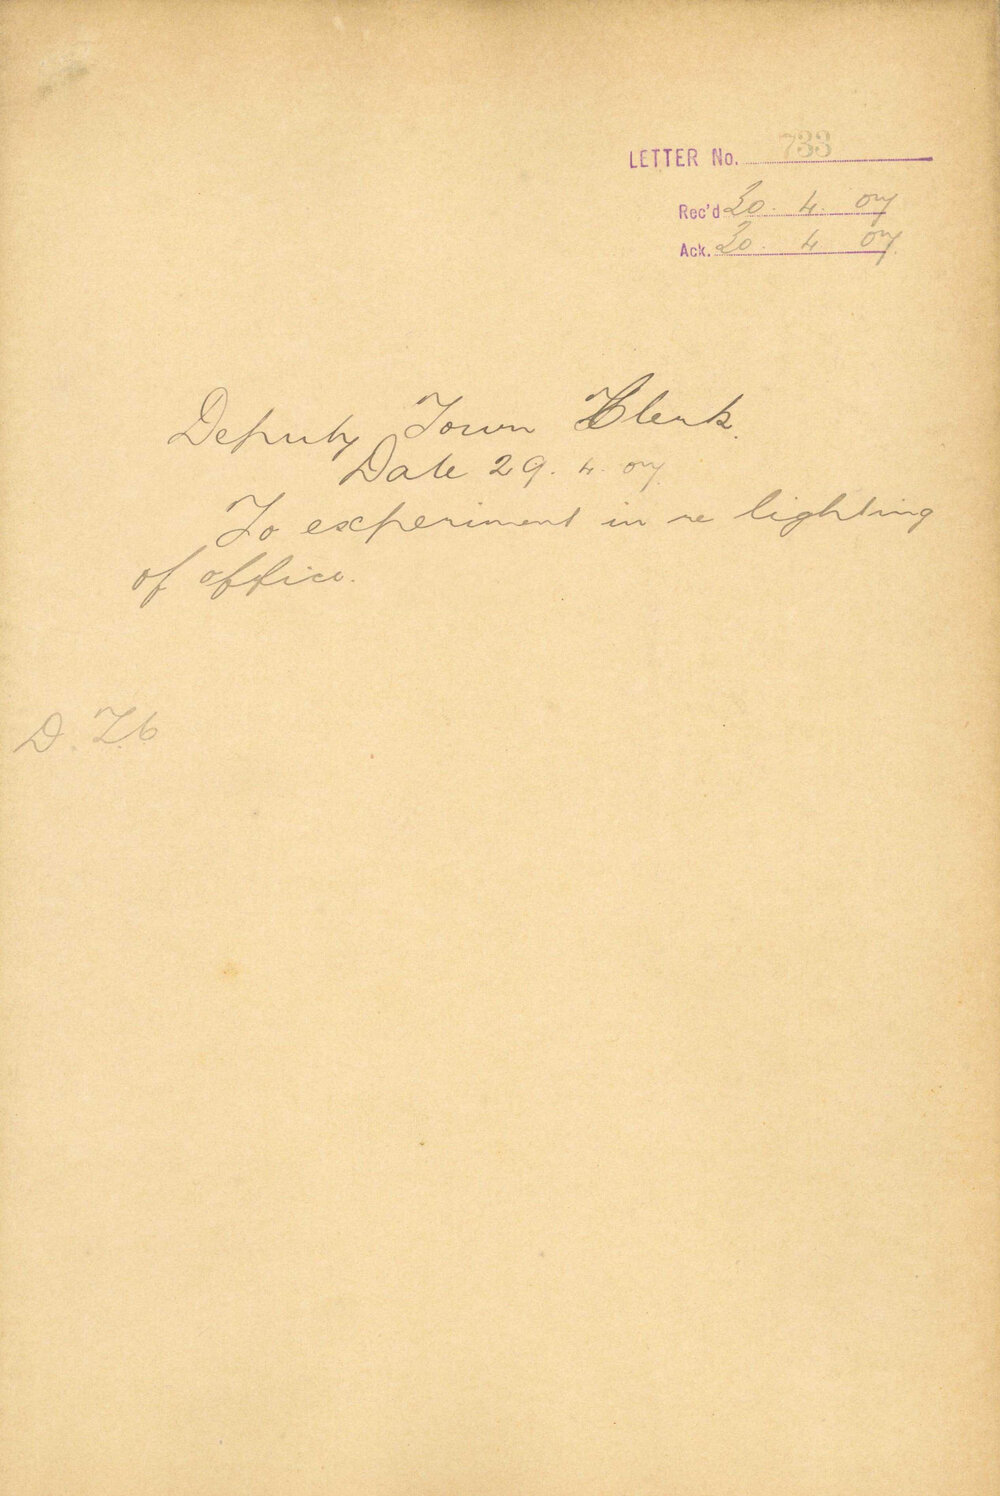 LETTER No. 733
Rec'd 30. 4. 07
Ack. 30. 4. 07.
Deputy Town Clerk.
Date 29. 4. 07.
To experiment in re lighting
of office.
D. T.C